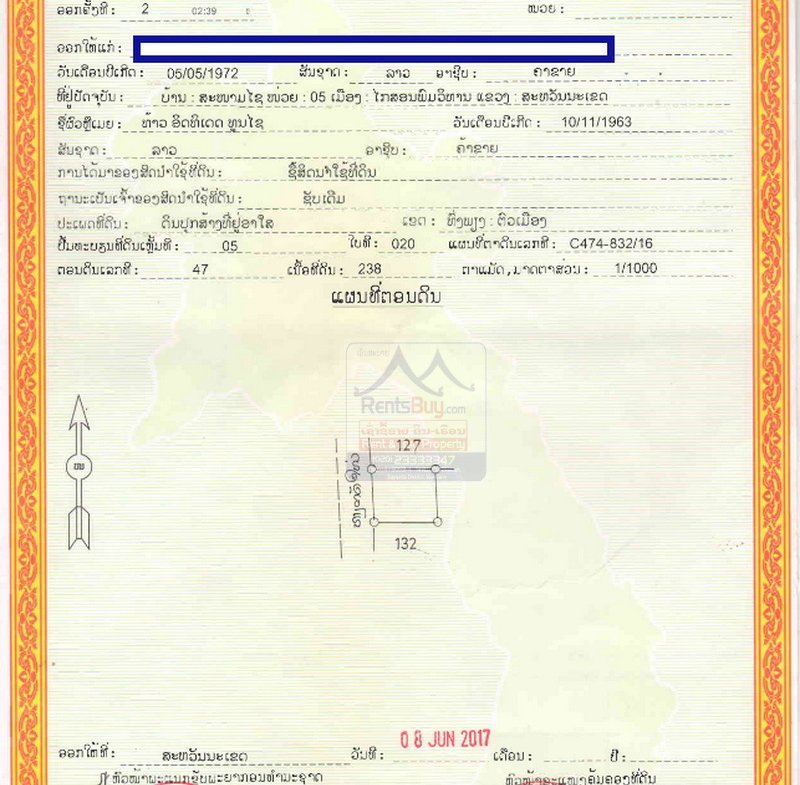 ອອກຄັ້ງທີ : 2 02:39 ໜ່ວຍ :
ອອກໃຫ້ແກ່ :
ວັນເດືອນປີເກີດ : 05/05/1972 ສັນຊາດ : ລາວ ອາຊີບ : ຄາຂາຍ
ທີ່ຢູ່ປັດຈຸບັນ : ບ້ານ : ສະໜາມໄຊ ໜ່ວຍ : 05 ເມືອງ : ໄກສອນພົມວິຫານ ແຂວງ : ສະຫວັນນະເຂດ
ຊື່ຜົວຫຼືເມຍ : ທ້າວ ອິດທິເດດ ທູນໄຊ ວັນເດືອນປີເກີດ : 10/11/1963
ສັນຊາດ : ລາວ ອາຊີບ : ຄ້າຂາຍ
ການໄດ້ມາຂອງສິດນຳໃຊ້ທີ່ດິນ : ຊື້ສິດນຳໃຊ້ທີ່ດິນ
ຖານະເປັນເຈົ້າຂອງສິດນຳໃຊ້ທີ່ດິນ : ຊັບເດີມ
ປະເພດທີ່ດິນ : ດິນປຸກສ້າງທີ່ຢູ່ອາໄສ ເຂດ : ທົ່ງພຽງ : ຕົວເມືອງ
ປຶ້ມທະບຽນທີ່ດິນເຫຼັ້ມທີ : 05 ໃບທີ : 020 ແຜນທີ່ຕາດິນເລກທີ : C474-832/16
ຕອນດິນເລກທີ : 47 ເນື້ອທີ່ດິນ : 238 ຕາແມັດ, ມາດຕາສ່ວນ : 1/1000
ແຜນທີ່ຕອນດິນ
RentsBuy.com
ເຊົ່າຊື້ຂາຍ ດິນ-ເຮືອນ
Rent & Property
23333347
127
ເໜືອ
132
ອອກໃຫ້ທີ່ : ສະຫວັນນະເຂດ ວັນທີ : 08 JUN 2017 ເດືອນ : ປີ :
ຫົວໜ້າພະແນກຊັບພະຍາກອນທຳມະຊາດ ຫົວໜ້າຂະແໜງຄຸ້ມຄອງທີ່ດິນ